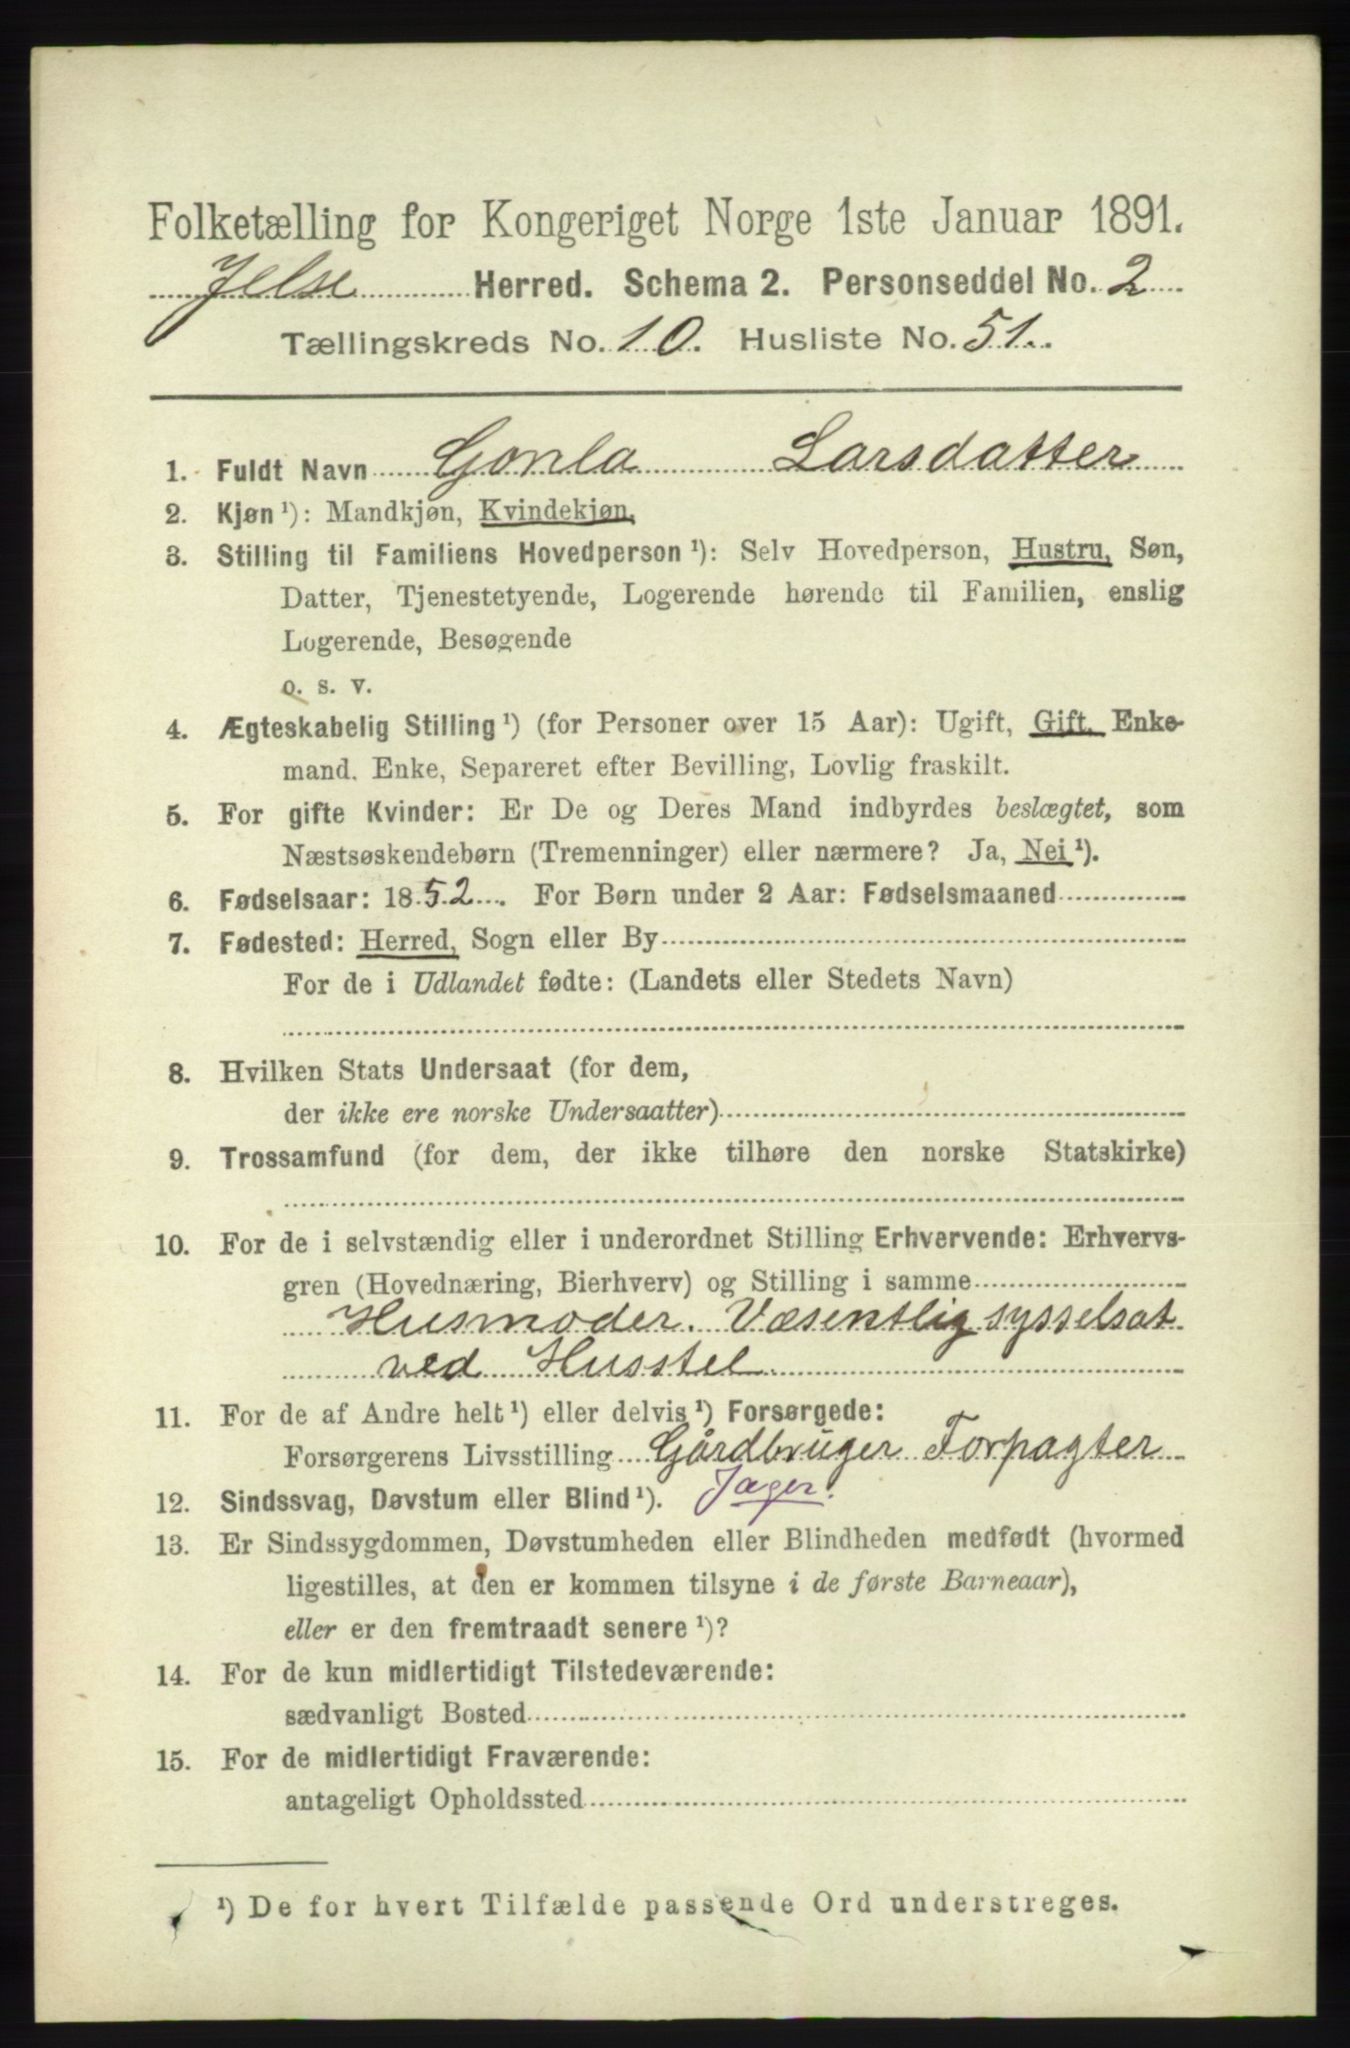 Folketælling for Kongeriget Norge 1ste Januar 1891.
Jelse Herred. Schema 2. Personseddel No. 2
Tællingskreds No. 10. Husliste No. 51.
1. Fuldt Navn Gonla Larsdatter
2. Kjøn¹): Mandkjøn, Kvindekjøn.
3. Stilling til Familiens Hovedperson¹): Selv Hovedperson, Hustru, Søn,
Datter, Tjenestetyende, Logerende hørende til Familien, enslig
Logerende, Besøgende
o. s. v.
4. Ægteskabelig Stilling¹) (for Personer over 15 Aar): Ugift, Gift, Enke-
mand. Enke, Separeret efter Bevilling, Lovlig fraskilt.
5. For gifte Kvinder: Er De og Deres Mand indbyrdes beslægtet, som
Næstsøskendebørn (Tremenninger) eller nærmere? Ja, Nei¹).
6. Fødselsaar: 1852. For Børn under 2 Aar: Fødselsmaaned
7. Fødested: Herred, Sogn eller By
For de i Udlandet fødte: (Landets eller Stedets Navn)
8. Hvilken Stats Undersaat (for dem,
der ikke ere norske Undersaatter)
9. Trossamfund (for dem, der ikke tilhøre den norske Statskirke)
10. For de i selvstændig eller i underordnet Stilling Erhvervende: Erhvervs-
gren (Hovednæring, Bierhverv) og Stilling i samme
Husmoder. Væsentlig sysselsat
ved Husstel
11. For de af Andre helt¹) eller delvis¹) Forsørgede:
Forsørgerens Livsstilling Gårdbruger Forpagter
12. Sindssvag, Døvstum eller Blind¹). Jæger.
13. Er Sindssygdommen, Døvstumheden eller Blindheden medfødt (hvormed
ligestilles, at den er kommen tilsyne i de første Barneaar),
eller er den fremtraadt senere¹)?
14. For de kun midlertidigt Tilstedeværende:
sædvanligt Bosted
15. For de midlertidigt Fraværende:
antageligt Opholdssted
¹) De for hvert Tilfælde passende Ord understreges.